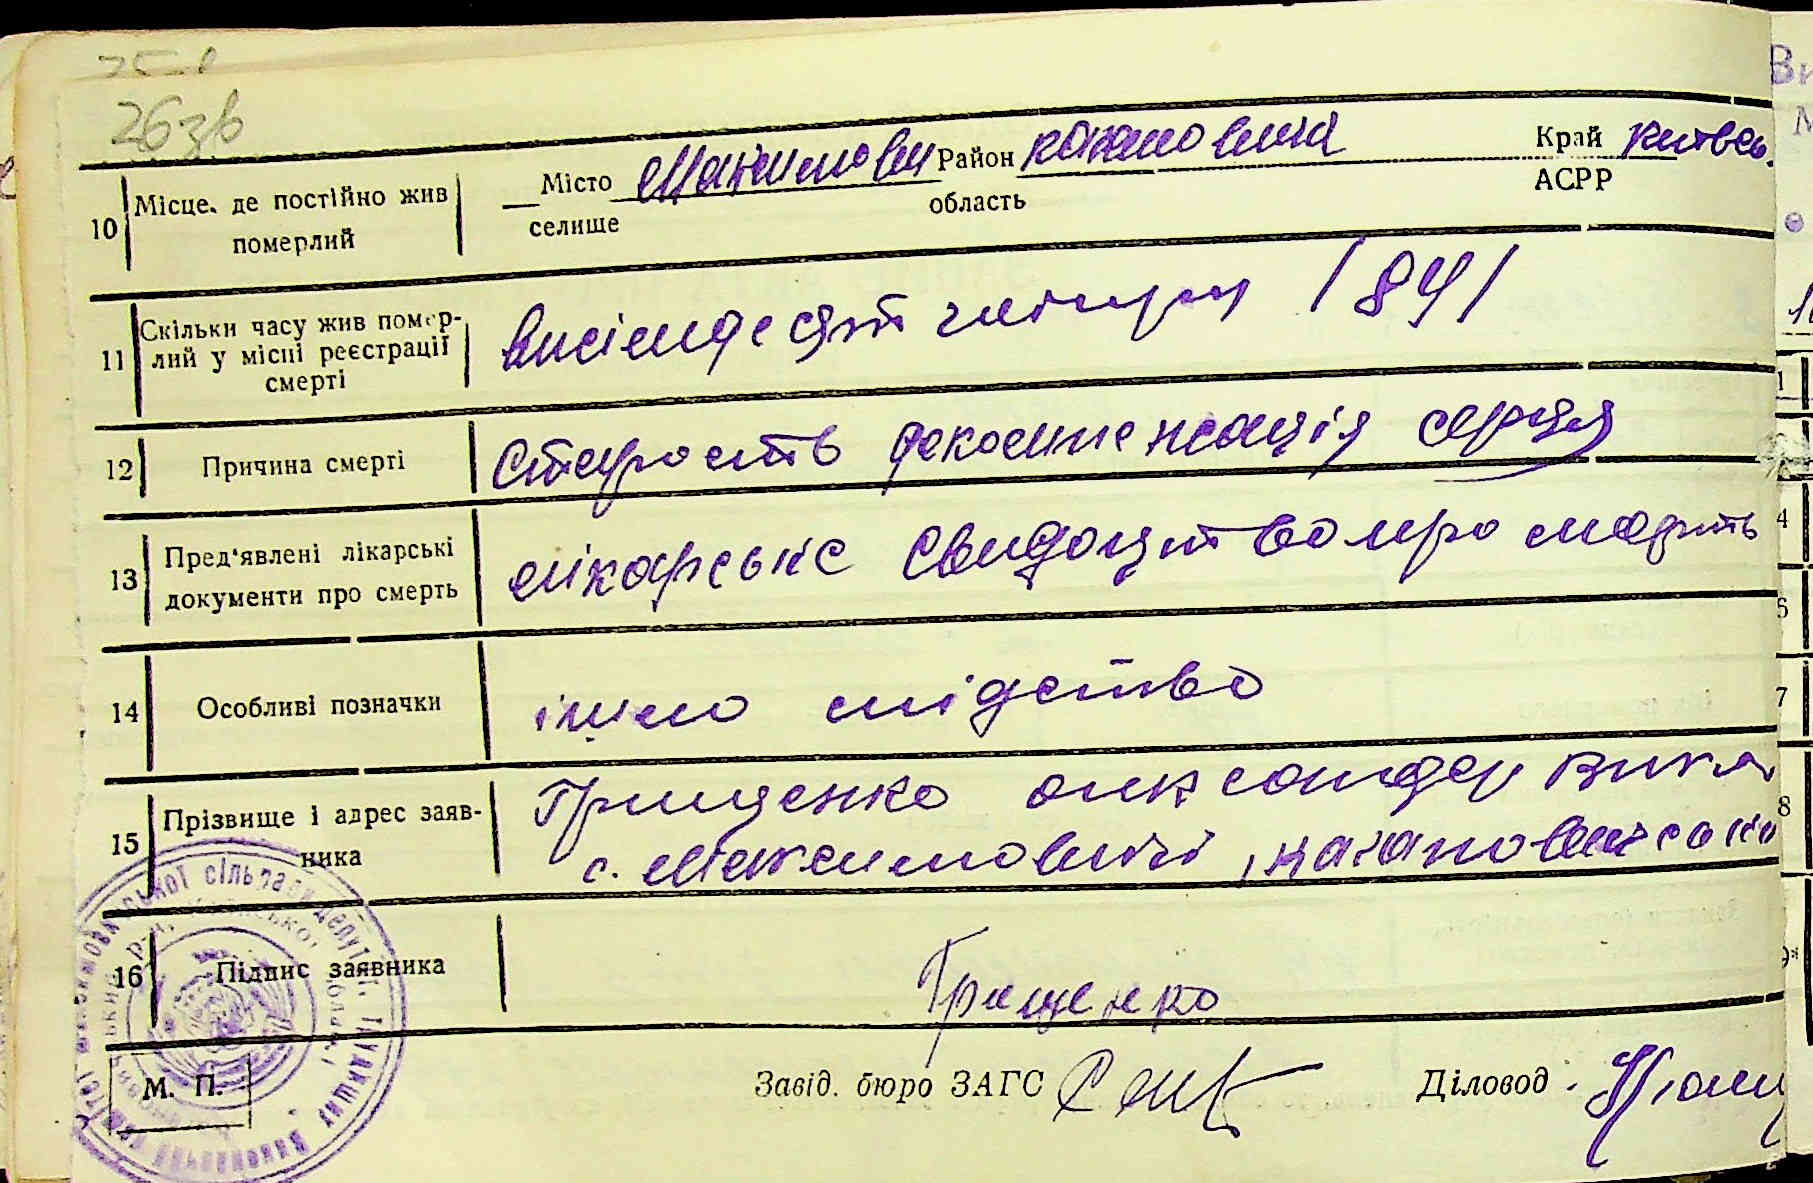 26зв
10 Місце, де постійно жив померлий
Місто Максимовичі Район кагановичі Край київсь.
селище область АСРР
11 Скільки часу жив помер-
лий у місці реєстрації
смерті
висімдесят чотири /84/
12 Причина смерті старость декомпенсація серця
13 Пред'явлені лікарські
документи про смерть
лікарське свидоцтво про смерть
14 Особливі позначки
15 Прізвище і адрес заяв-
ника
Грищенко олександер
с. Максимовичі, кагановичсько
16 Підпис заявника Грищенко
М. П.
Завід. бюро ЗАГС Діловод